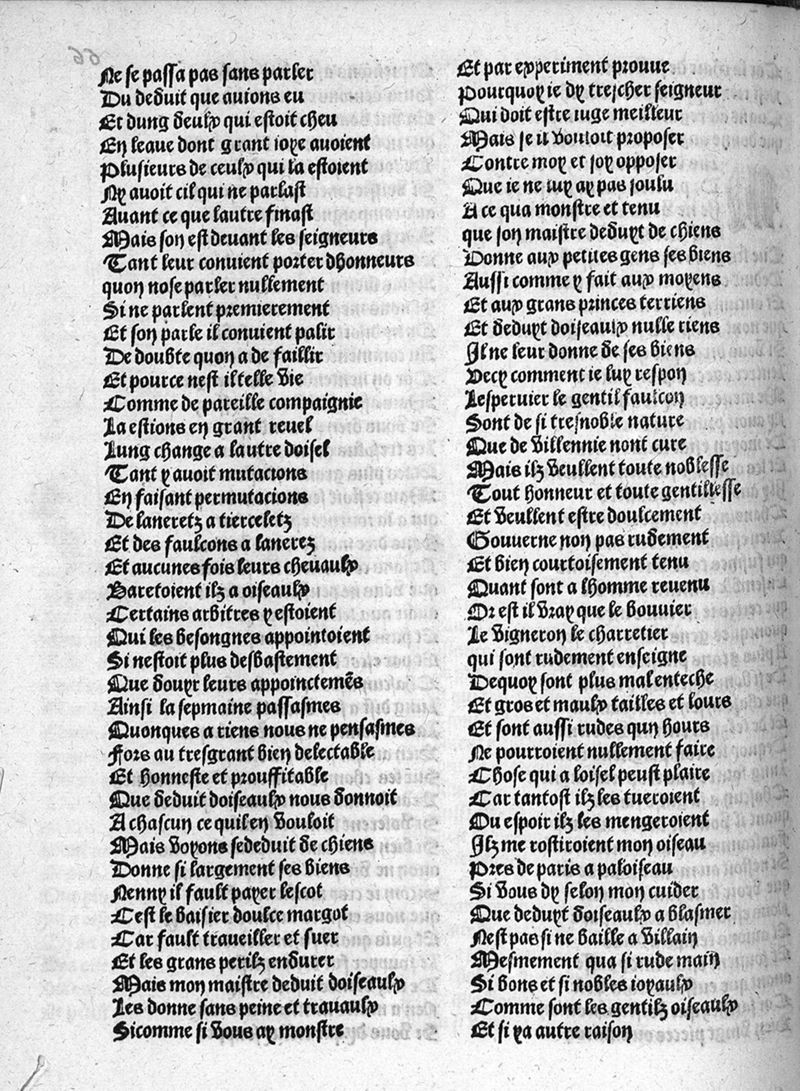 66
Ne se passa pas sans parler
Du deduit que auions eu
Et dung deulx qui estoit cheu
En leaue dont grant ioye auoient
Plusieurs de ceulx qui la estoient
Ny auoit cil qui ne parlast
Auant ce que lautre finast
Mais son est deuant les seigneurs
Tant leur conuient porter dhonneurs
quon nose parler nullement
Si ne parlent premierement
Et son parle il conuient palir
De doubte quon a de faillir
Et pource nest il telle vie
Comme de pareille compaignie
La estions en grant reuel
Lung change a lautre doisel
Tant y auoit mutacions
En faisant permutacions
De laneretz a tierceletz
Et des faulcons a lanerez
Et aucunes fois leurs cheuaulx
Baretoient ilz a oiseaulx
Certains arbitres y estoient
Qui les besongnes appointoient
Si nestoit plus desbastement
Que douyr leurs appoinctemēs
Ainsi la sepmaine passasmes
Quonques a riens nous ne pensasmes
Fors au tresgrant bien delectable
Et honneste et prouffitable
Que deduit doiseaulx nous donnoit
A chascun ce quil en vouloit
Mais voyons se deduit de chiens
Donne si largement ses biens
Nenny il fault payer lescot
Cest le baisier doulce margot
Car fault traueiller et suer
Et les grans perilz endurer
Mais mon maistre deduit doiseaulx
Les donne sans peine et trauaulx
Sicomme si vous ay monstre
Et par experiment prouue
Pourquoy ie dy trescher seigneur
Qui doit estre iuge meilleur
Mais se il vouloit proposer
Contre moy et soy opposer
Que ie ne luy ay pas soulu
A ce qua monstre et tenu
que son maistre deduyt de chiens
Donne aux petites gens ses biens
Aussi comme y fait aux moyens
Et aux grans princes terriens
Et deduyt doiseaulx nulle riens
Il ne leur donne de ses biens
Vecy comment ie luy respon
Lesperuier le gentil faulcon
Sont de si tresnoble nature
Que de villennie nont cure
Mais ilz veullent toute noblesse
Tout honneur et toute gentillesse
Et veullent estre doulcement
Gouuerne non pas rudement
Et bien courtoisement tenu
Quant sont a lhomme reuenu
Or est il vray que le bouuier
Le vigneron le charretier
qui sont rudement enseigne
Dequoy sont plus mal enteche
Et gros et maulx tailles et lours
Et sont aussi rudes qun hours
Ne pourroient nullement faire
Chose qui a loisel peust plaire
Car tantost ilz les tueroient
Ou espoir ilz les mengeroient
Ilz me rostiroient mon oiseau
Pres de paris a paloiseau
Si vous dy selon mon cuider
Que deduyt doiseaulx a blasmer
Nest pas si ne baille a villain
Mesmement qua si rude main
Si bons et si nobles ioyaulx
Comme sont les gentilz oiseaulx
Et si ya autre raison